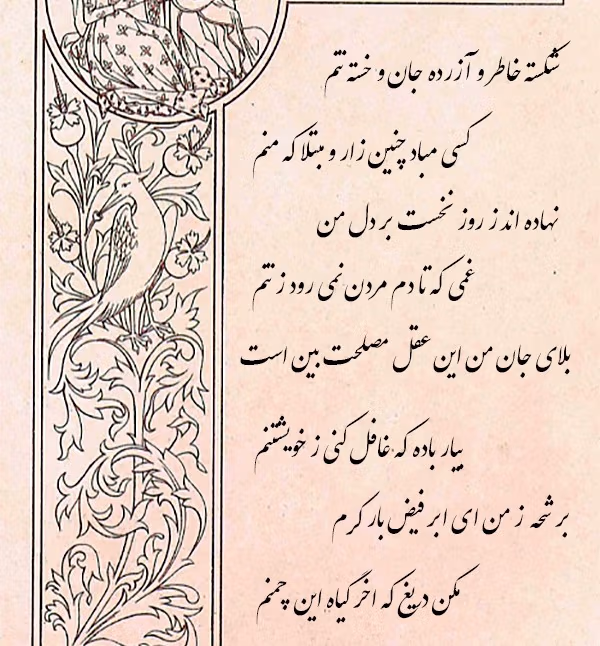 شکسته خاطر و آزرده جان و خسته تنم
کسی مباد چنین زار و مبتلا که منم
نهاده اند ز روز نخست بر دل من
غمی که تا دم مردن نمی رود ز تنم
بلای جان من این عقل مصلحت بین است
بیار باده که غافل کنی ز خویشتنم
بر شحه ز من ای ابر فیض بار کرم
مکن دریغ که اخر گیاه این چمنم